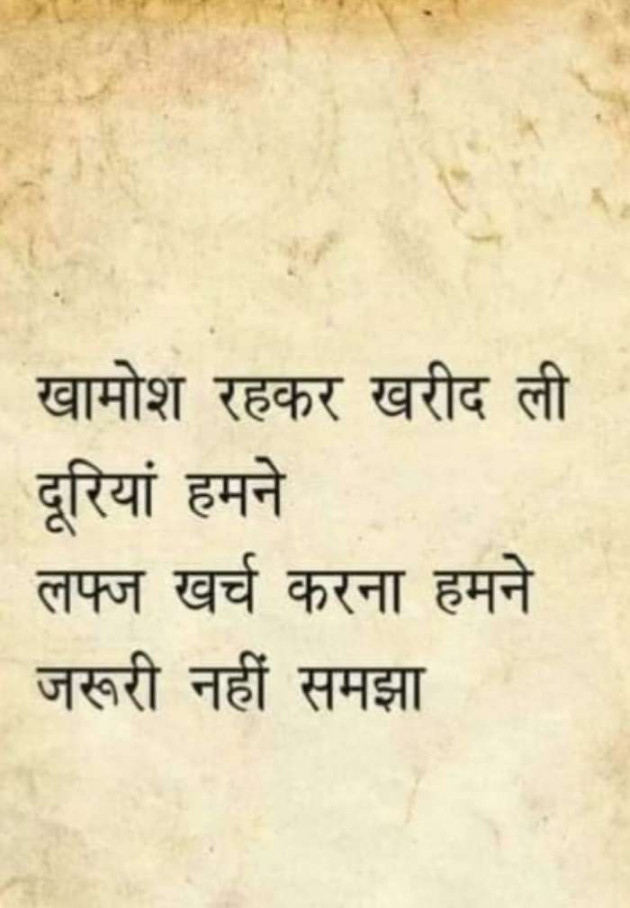 खामोश रहकर खरीद ली
दूरियां हमने
लफ्ज खर्च करना हमने
जरूरी नहीं समझा